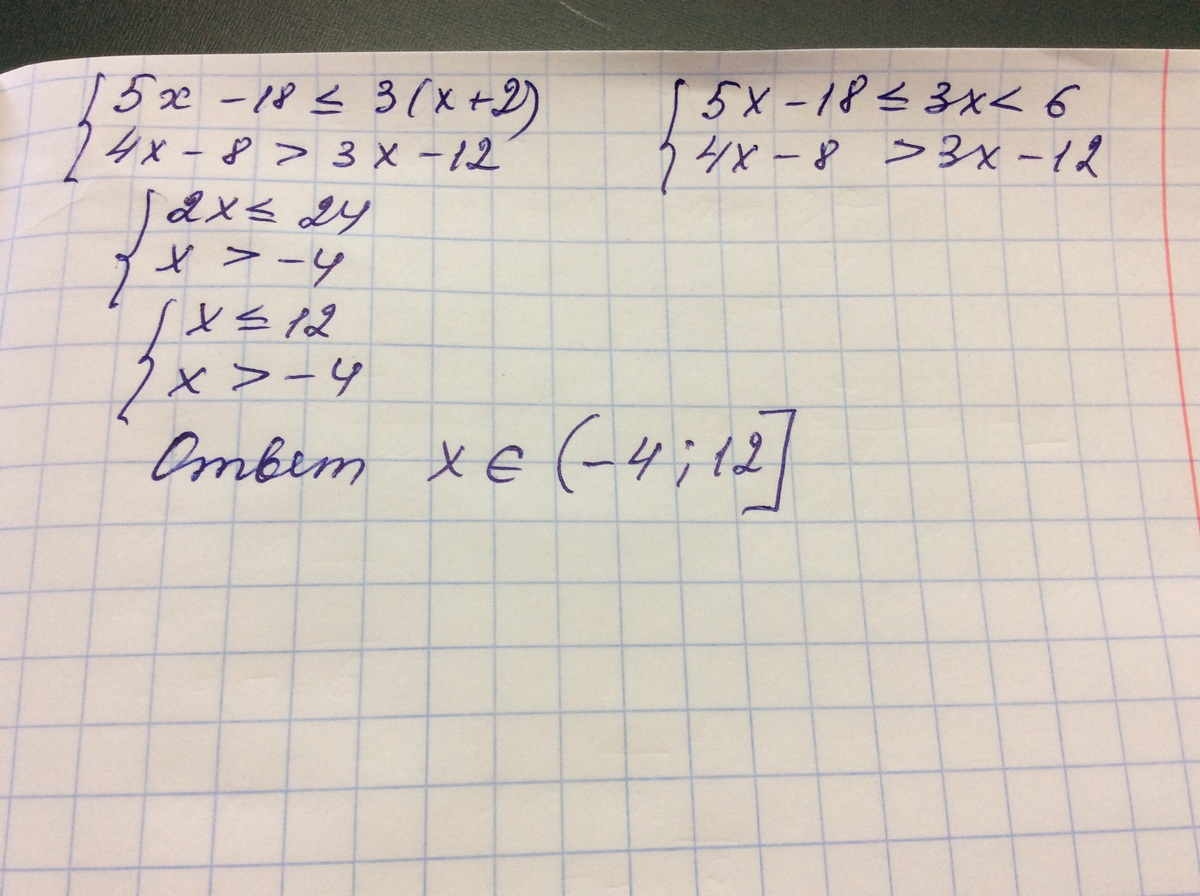 5x - 18 ≤ 3(x+2)
4x - 8 > 3x - 12
5x - 18 ≤ 3x < 6
4x - 8 > 3x - 12
2x ≤ 24
x > -4
x ≤ 12
x > -4
Ответ x ∈ (-4; 12]